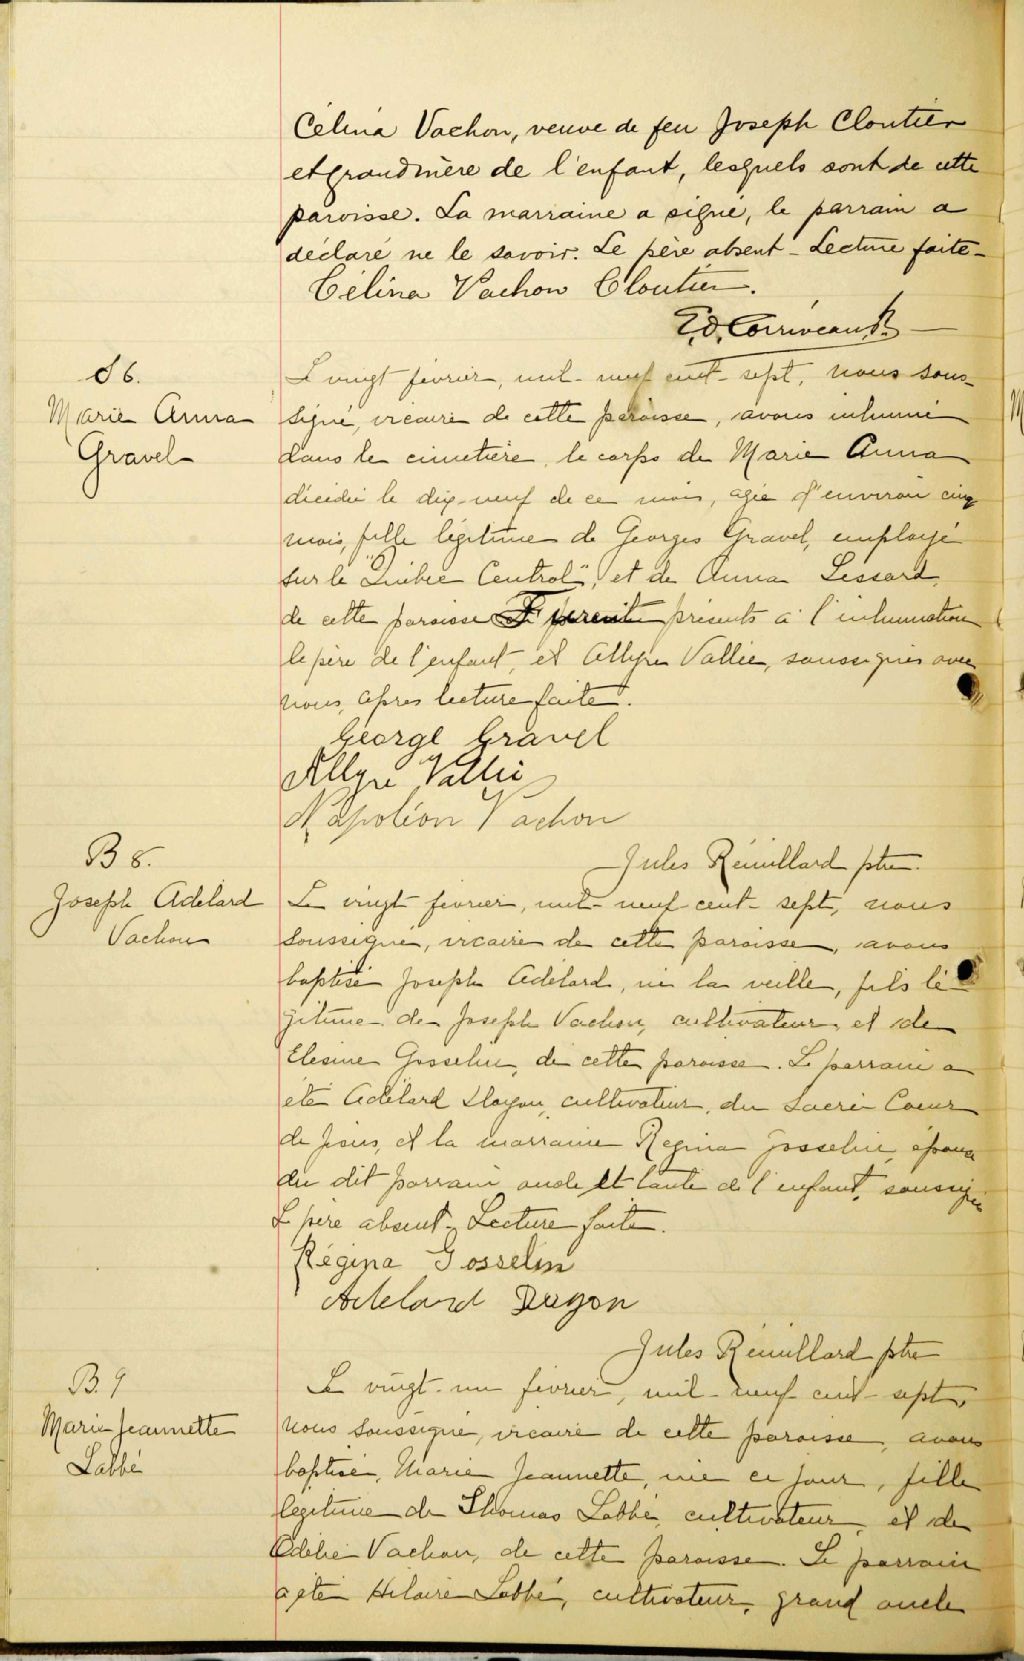 Célina Vachon, veuve de feu Joseph Cloutier
et grandmère de l'enfant, lesquels sont de cette
paroisse. La marraine a signé, le parrain a
déclaré ne le savoir. Le père absent - Lecture faite -
Célina Vachon Cloutier.
Ed. Corriveau
S 6.
Marie Anna
Gravel
Le vingt février, mil-neuf cent-sept, nous sous-
signé, vicaire de cette paroisse, avons inhumé
dans le cimetière, le corps de Marie Anna
décédée le dix-neuf de ce mois, agée d'environ cinq
mois, fille légitime de Georges Gravel, employé
sur le "Québec Central", et de Anna Lessard,
de cette paroisse Furent présents à l'inhumation
le père de l'enfant, et Allyre Vallée, soussignés avec
nous, après lecture faite.
George Gravel
Allyre Vallée
Napoléon Vachon
Jules Rémillard ptre.
B 8.
Joseph Adélard
Vachon
Le vingt février, mil-neuf cent-sept, nous
soussigné, vicaire de cette paroisse, avons
baptisé Joseph Adélard, né la veille, fils lé-
gitime de Joseph Vachon, cultivateur, et de
Elesine Gosselin, de cette paroisse. Le parrain a
été Adélard Doyon, cultivateur, du Sacré Coeur
de Jésus, et la marraine Regina Gosselin, épouse
du dit parrain oncle et tante de l'enfant, soussignés
Le père absent. Lecture faite.
Régina Gosselin
Adelard Doyon
Jules Rémillard ptre
B. 9
Marie Jeannette
Labbé
Le vingt-un février, mil-neuf-cent-sept,
nous soussigné, vicaire de cette paroisse, avons
baptisé, Marie Jeannette, née ce jour, fille
légitime de Thomas Labbé, cultivateur, et de
Odélie Vachon, de cette paroisse. Le parrain
a été Hilaire Labbé, cultivateur, grand oncle